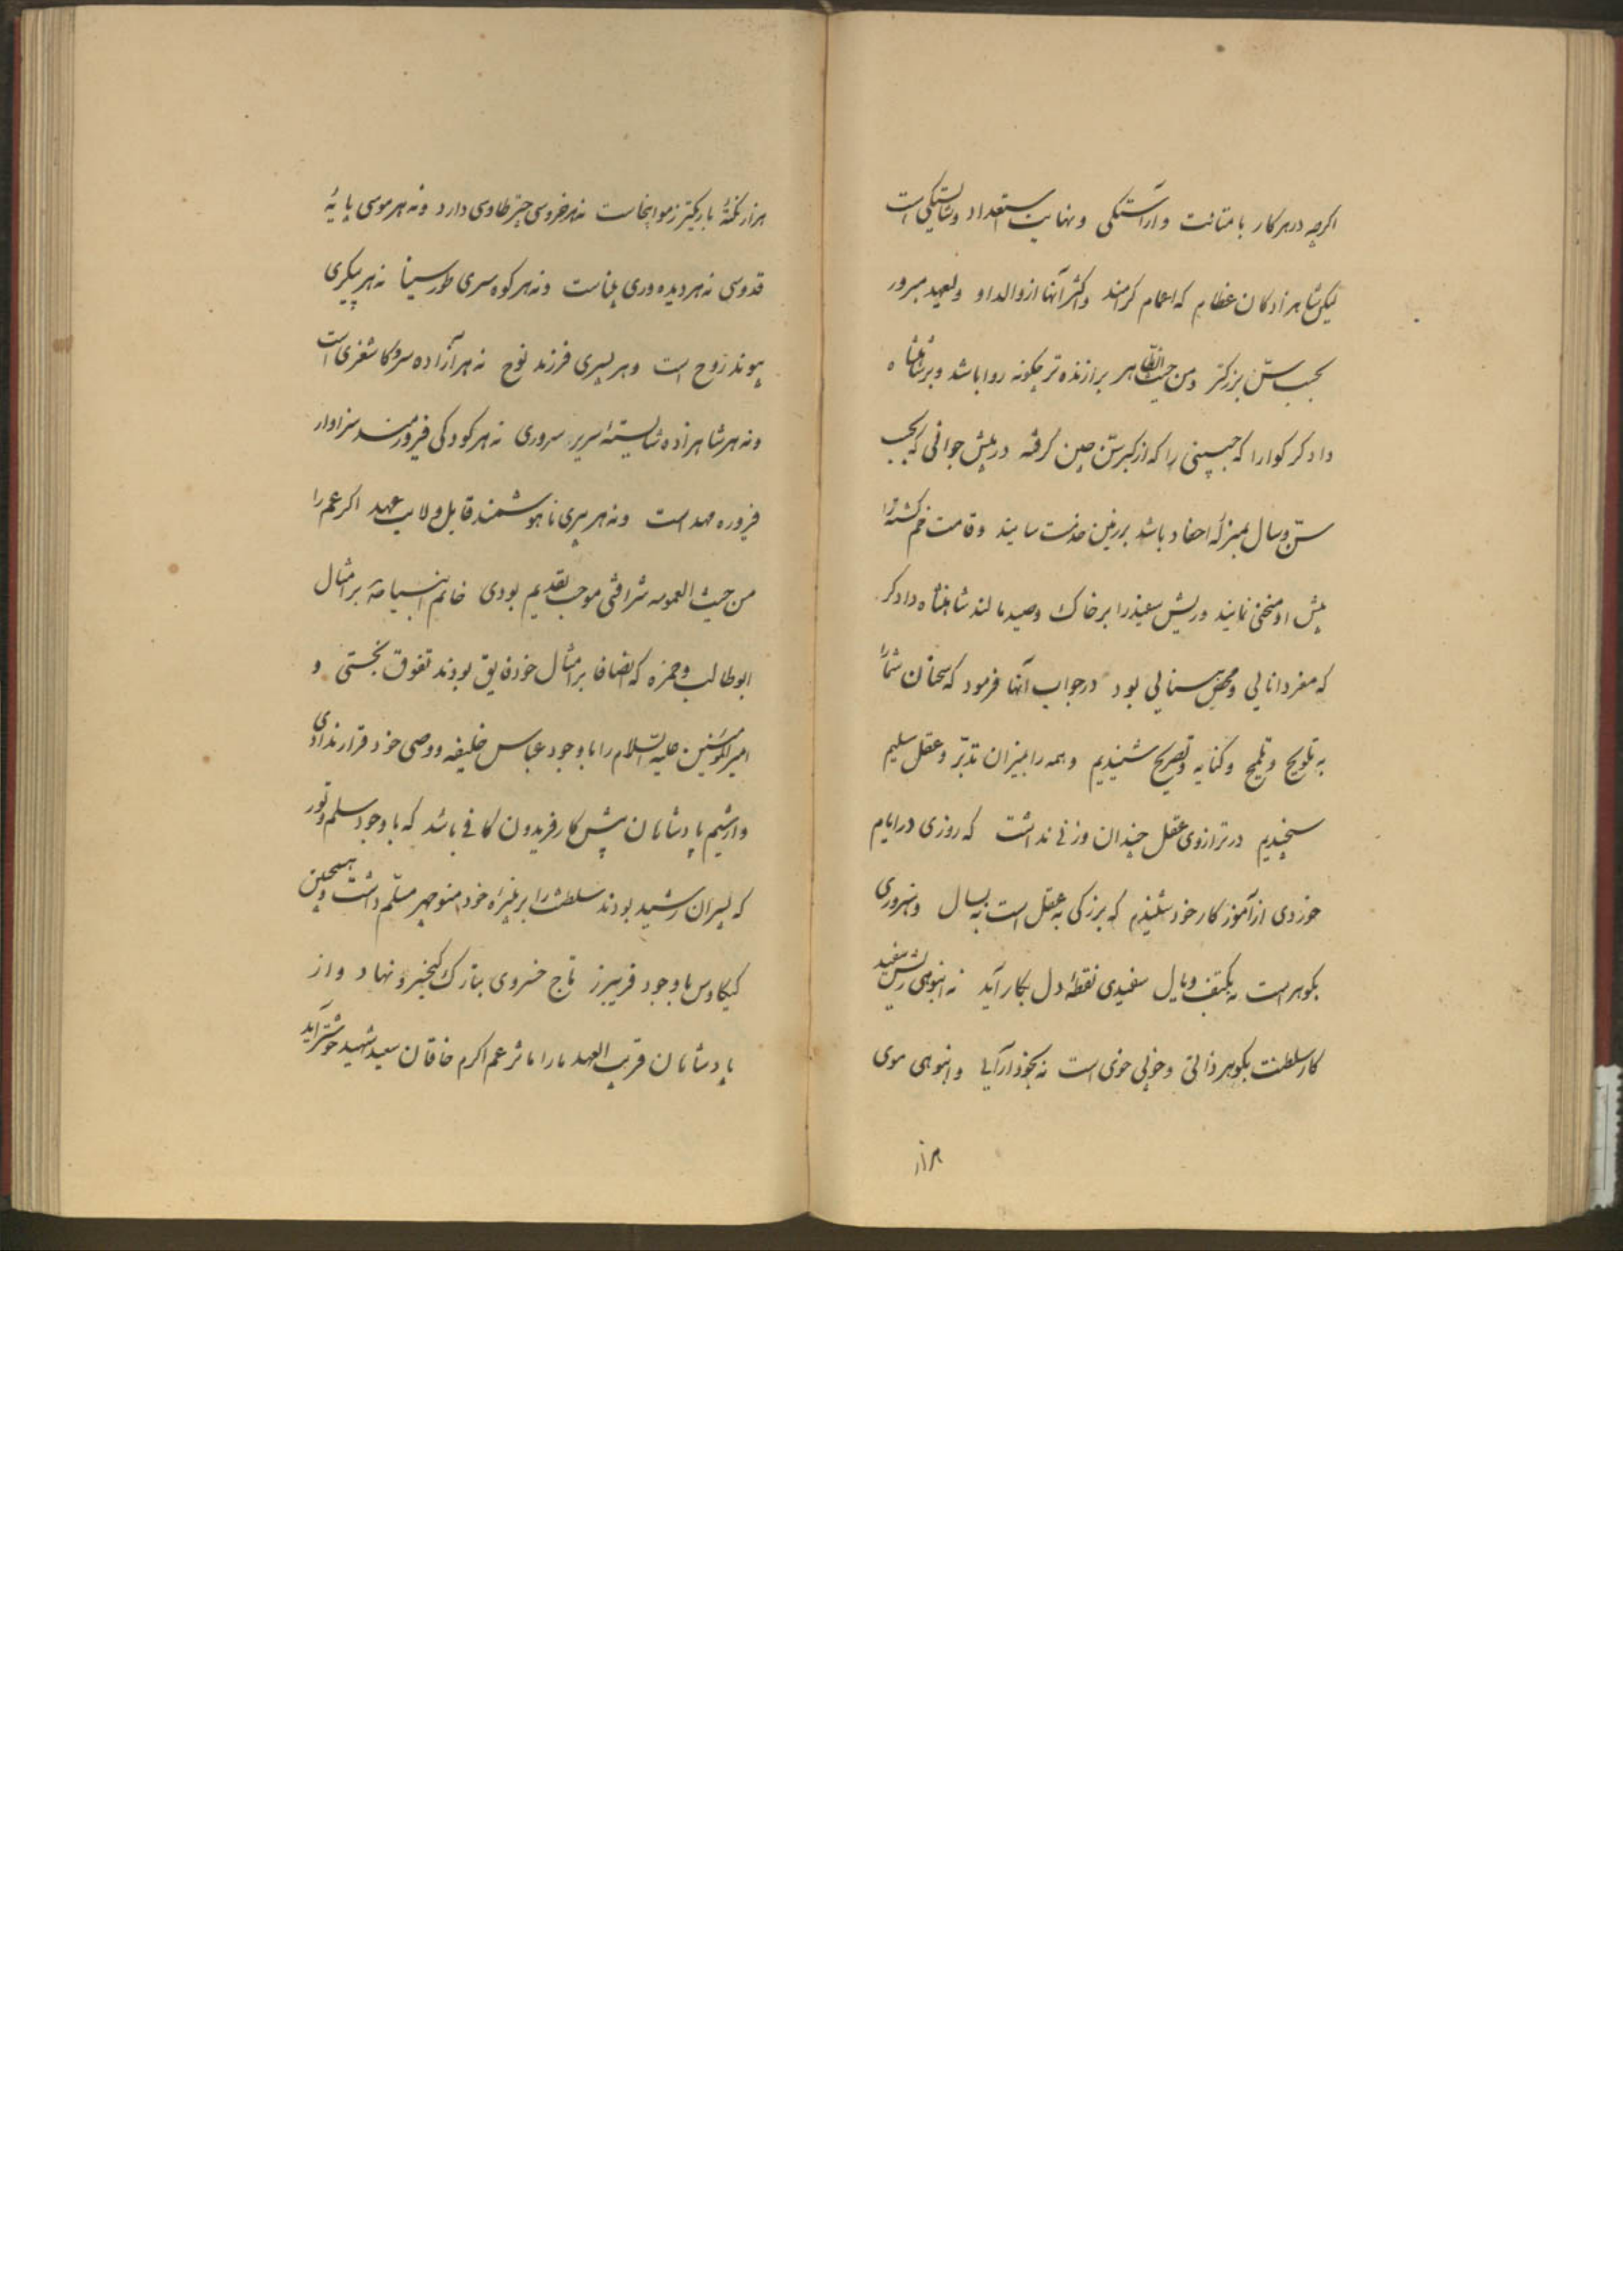 اگرچه در هر کار با متانت و آراستگی و نهایت استعداد و شایستگی است
لیکن شاهزادکان عظام که اعمام کرامند و اکثر آنها از والد او ولعهد مبرور
بحسب سنّ بزرکتر و من حیث الظاهر برازنده تر چکونه روا باشد و بر شاهنشاه
دادکر کوارا که جبینی را که از کبر سنّ چین کرفته در پیش جوانی که بحسب
سنّ و سال بمنزلهٔ احفاد باشد بر زمین خدمت سایند و قامت خم کشته را
پیش او منحنی نمایند و ریش سفید را بر خاک وصید مالند شاهنشاه دادکر
که مغز دانایی و محض بینایی بود در جواب آنها فرمود که سخنان شما را
به تلویح و تلمیح و کنایه و تصریح شنیدیم و همه را بمیزان تدبّر و عقل سلیم
سنجیدیم در ترازوی عقل چندان وزنی نداشت که روزی در ایام
خوردی از آموزکار خود شنیدم که بزرکی به عقل است نه بسال و سروری
بکوهر است نه بکتف و یال سفیدی نقطهٔ دل بکار آید نه انبوهی ریش سفید
کار سلطنت بکوهر ذاتی و خوبی خوی است نه بخودآرایی و انبوهی موی
هزار
هزار نکتهٔ باریکتر ز مو اینجاست نه هر خروسی چتر طاوسی دارد و نه هر موسی پایهٔ
قدوسی نه هر دیده وری بیناست و نه هر کوه سری طور سینا نه هر پیکری
پیوند روح است و هر پسری فرزند نوح نه هر آزاده سرو کاشغری است
و نه هر شاهزاده شایستهٔ سریر سروری نه هر کودکی فیروزمند سزاوار
فیروزه مهد است و نه هر پیری ناهوشمند قابل ولایت عهد اکر عم را
من حیث العمومه شرافتی موجب تقدیم بودی خاتم انبیا صه بر امثال
ابوطالب و حمزه که انصافا بر امثال خود فایق بودند تفوق نجستی و
امیرالمؤمنین علیه السّلام را با وجود عباس خلیفه و وصی خود قرار ندادی
واز شیم پادشاهان پیش کار فریدون کافی باشد که با وجود سلم و تور
که پسران رشید بودند سلطنت را بر نبیرهٔ خود منوچهر مسلّم داشت و همچنین
کیکاوس با وجود فریبرز تاج خسروی بتارک کیخسرو نهاد و از
پادشاهان قریب العهد ما را مآثر عم اکرم خاقان سعید شهید خوشتر آید